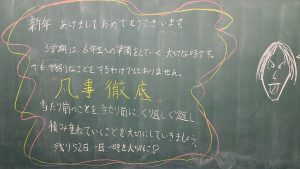 新年 あけましておめでとうございます。
3学期は、6年生への準備をしていく大切な時です。
でも特別なことをするわけではありません。
凡事徹底
当たり前のことを当たり前に、くり返しくり返し
積み重ねていくことを大切にしていきましょう。
残り52日 一日一時を大切に!?